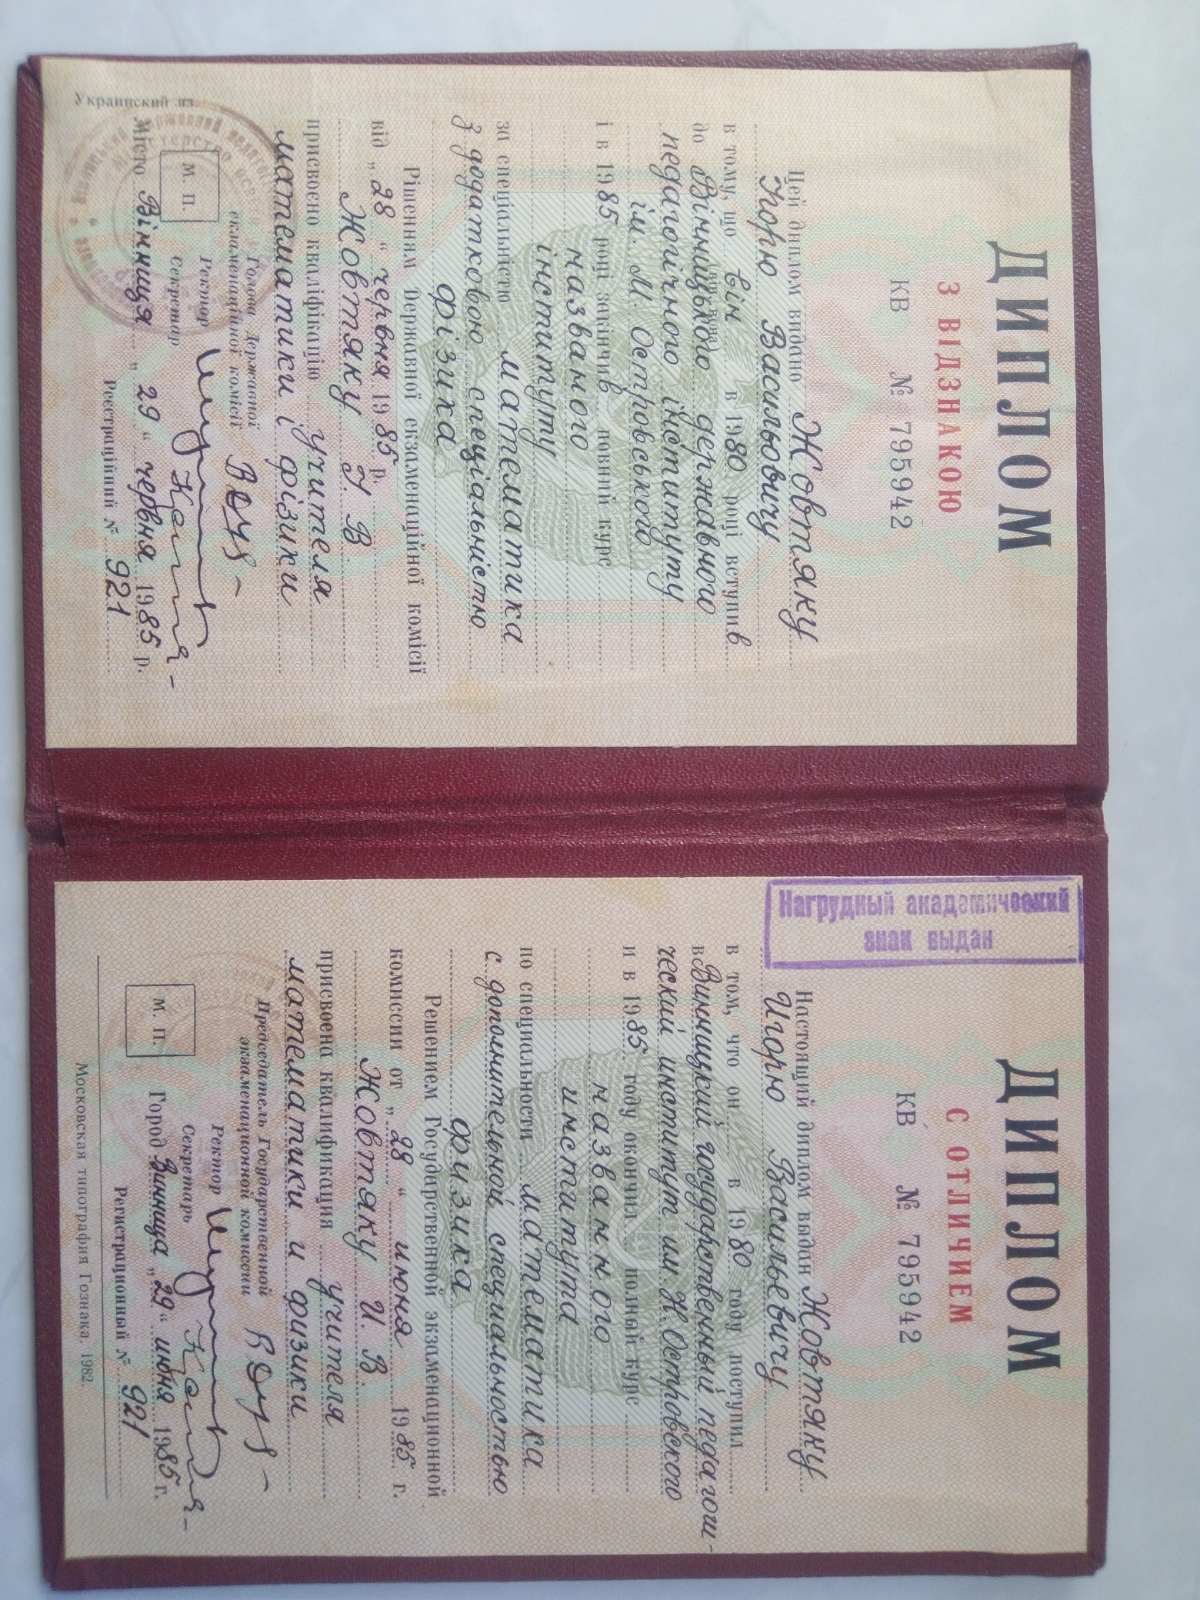 ДИПЛОМ
З ВІДЗНАКОЮ
КВ № 795942
Цей диплом видано Жовтяку
Ігорю Васильовичу
в тому, що він в 1980 році вступив
(він, вона)
до Вінницького державного
педагогічного інституту
ім. М. Островського
і в 1985 році закінчив повний курс
названого
інституту
за спеціальністю математика
з додатковою спеціальністю
фізика
Рішенням Державної екзаменаційної комісії
від „28“ червня 1985 р.
Жовтяку І. В
присвоєно кваліфікацію учителя
математики і фізики
Голова Державної
екзаменаційної комісії
Ректор
Секретар
М. П.
Місто Вінниця „29“ червня 1985 р.
Реєстраційний № 921
Украинский яз.
Нагрудный академический
знак выдан
ДИПЛОМ
С ОТЛИЧИЕМ
КВ № 795942
Настоящий диплом выдан Жовтяку
Игорю Васильевичу
в том, что он в 1980 году поступил
в Винницкий государственный педагоги-
ческий институт им. Н. Островского
и в 1985 году окончил полный курс
названного
института
по специальности математика
с дополнительной специальностью
физика
Решением Государственной экзаменационной
комиссии от „28“ июня 1985 г.
Жовтяку И. В.
присвоена квалификация учителя
математики и физики
Председатель Государственной
экзаменационной комиссии
Ректор
Секретарь
М. П.
Город Винница „29“ июня 1985 г.
Регистрационный № 921
Московская типография Гознака. 1982.